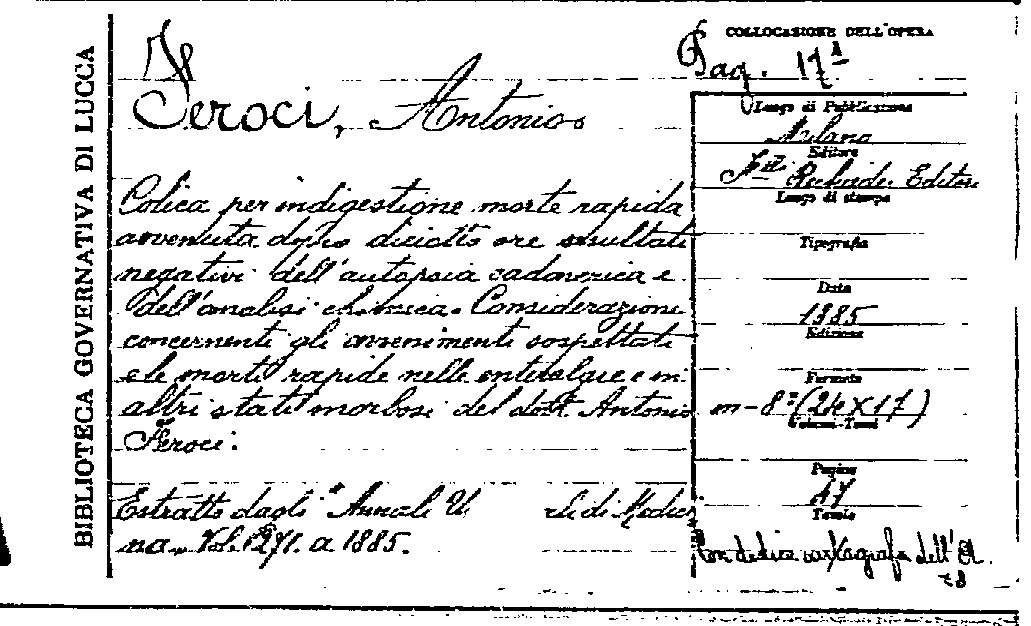 BIBLIOTECA GOVERNATIVA DI LUCCA
F
Feroci, Antonio
Colica per indigestione morte rapida
avvenuta dopo diciotto ore risultati
negativi dell'autopsia cadaverica e
dell'analisi chimica. Considerazione
concernenti gli avvenimenti sospettati
e le morti rapide nelle enteralgie e in
altri stati morbosi del dott. Antonio
Feroci.
Estratto dagli "Annali U rli di Medici
na„ Vol. 271. a 1885.
COLLOCAZIONE DELL'OPERA
Pag. 17ª
Luogo di Pubblicazione
Milano
Editore
Editore
Luogo di stampa
Tipografia
Data
1885
Edizione
Formato
in-8° (24X17)
Volumi-Tomi
Pagine
47
Tavole
Con dedica autografa dell'A.